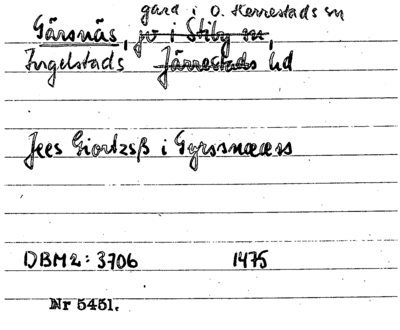 gård i Ö. Herrestads sn
Gärsnäs, jv i Stiby sn,
Ingelstads Järrestads hd
Jees Giortzsß i Gyrssnææs
DBM2: 3706 1475
Nr 5451.